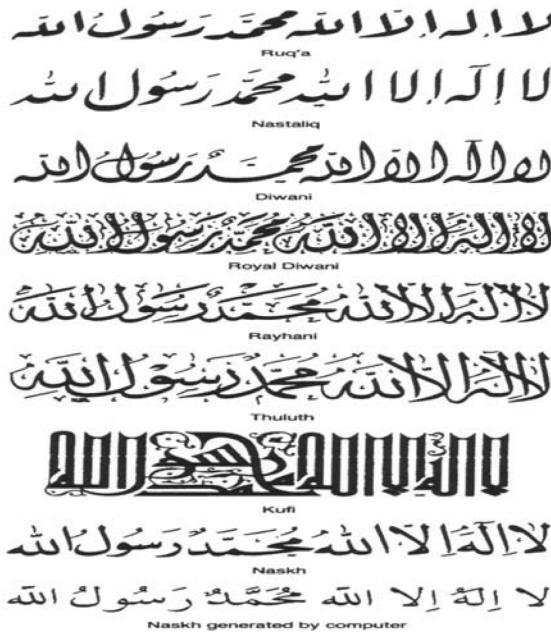 لا اله الا الله محمد رسول الله
Ruq'a
لا اله الا الله محمد رسول الله
Nastaliq
لا اله الا الله محمد رسول الله
Diwani
لا اله الا الله محمد رسول الله
Royal Diwani
لا اله الا الله محمد رسول الله
Rayhani
لا اله الا الله محمد رسول الله
Thuluth
لا اله الا الله محمد رسول الله
Kufi
لا اله الا الله محمد رسول الله
Naskh
لا إلهَ إلا الله محمَّدٌ رَسولُ الله
Naskh generated by computer